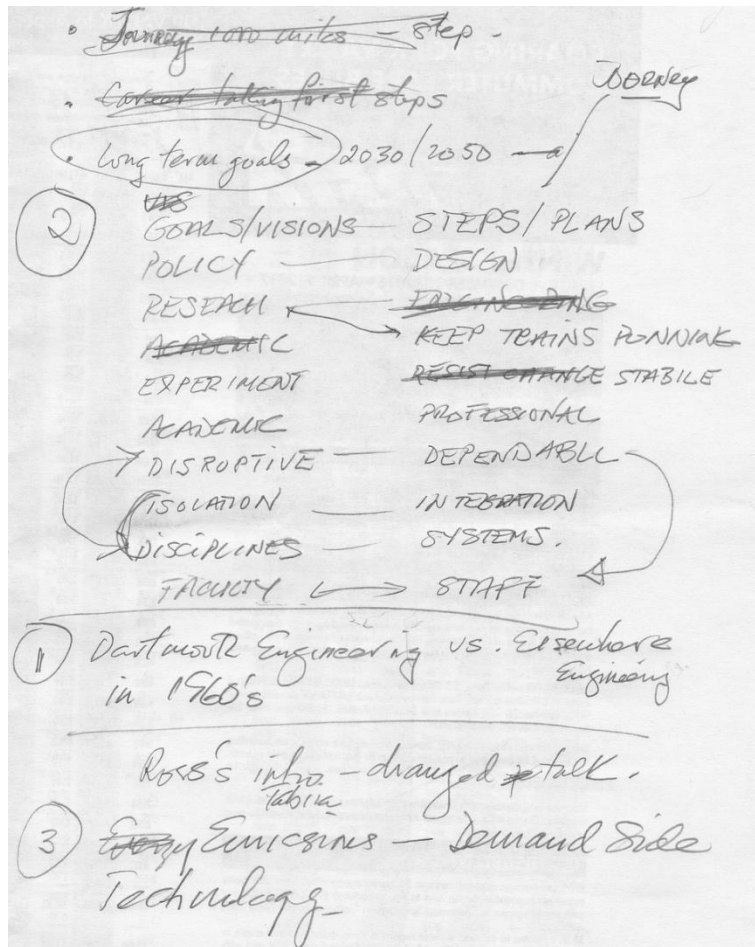 • Journey 1000 miles - step -
• Career taking first steps
JOURNEY
• Long term goals - 2030/2050
2
VIS
GOALS/VISIONS — STEPS/PLANS
POLICY — DESIGN
RESEACH — ENGINEERING
KEEP TRAINS RUNNING
ACADEMIC
EXPERIMENT RESIST CHANGE STABILE
ACADEMIC PROFESSIONAL
DISRUPTIVE — DEPENDABLE
ISOLATION — INTEGRATION
DISCIPLINES — SYSTEMS.
FACULTY ↔ STAFF
1 Dartmouth Engineering vs. Elsewhere
Engineering
in 1960's
Ross's intro - changed talk.
3 Energy Emissions — Demand Side
Technology